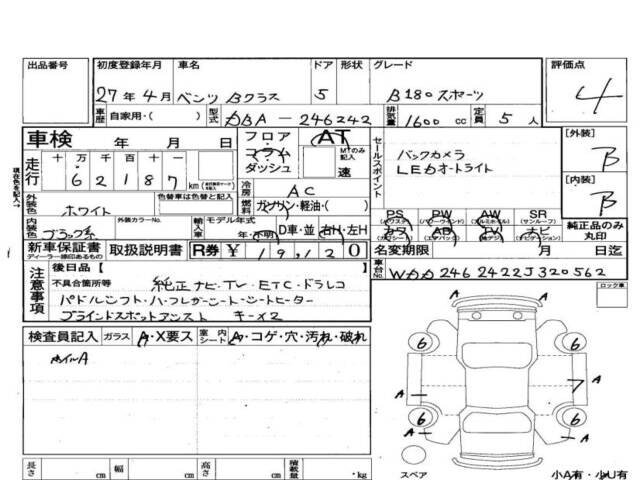 出品番号 初度登録年月 車名 ドア 形状 グレード 評価点
27年 4月 ベンツ Bクラス 5 B180スポーツ 4
車歴 自家用・( ) 型式 DBA-246242 排気量 1600 cc 定員 5 人
車検 年 月 日 フロア コラム ダッシュ AT MTのみ記入 速 セールスポイント [外装] B
走行 十 万 千 百 十 一 62187 km
現車名を記入→
バックカメラ
LEDオートライト
[内装] B
外装色 ホワイト 色替車は色替と記入 冷房 AC
燃料 ガソリン・軽油・( )
内装色 ブラック系 外装カラーNo. 輸入車 モデル年式 年・不明 D車・並 右H・左H
PS (パワステ) PW (パワーウインドウ) AW (アルミホイル) SR (サンルーフ) 純正品のみ丸印
カワ (カワシート) AB (エアバック) TV (地デジ) ナビ (ナビゲーション)
新車保証書 ディーラー捺印あるもの 取扱説明書 R券 ¥ 19,120 名変期限 月 日迄
注意事項 後日品 [ ] 車台No. WDD2462422J320562
不具合箇所等 純正ナビ・TV・ETC・ドラレコ
パドルシフト・ハーフレザーシート・シートヒーター
ブラインドスポットアシスト キー×2
ロック車
検査員記入 ガラス A・X要ス 室内シート A・コゲ・穴・汚れ・破れ
ホイルA
6 A 6
A 7
A 6 6 A
A
スペア 小A有・小U有
長さ cm 幅 cm 高さ cm 積載量 ・kg